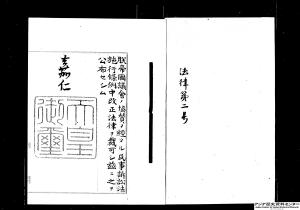 法律第二号
朕帝国議会ノ協賛ヲ経タル民事訴訟法
施行条例中改正法律ヲ裁可シ茲ニ之ヲ
公布セシム
嘉仁
天皇
御璽
アジア歴史資料センター